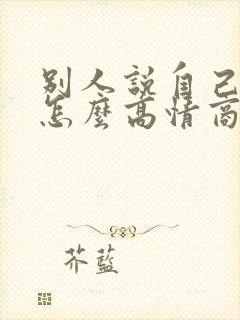 别人説自己
怎麽高情商
芥藍